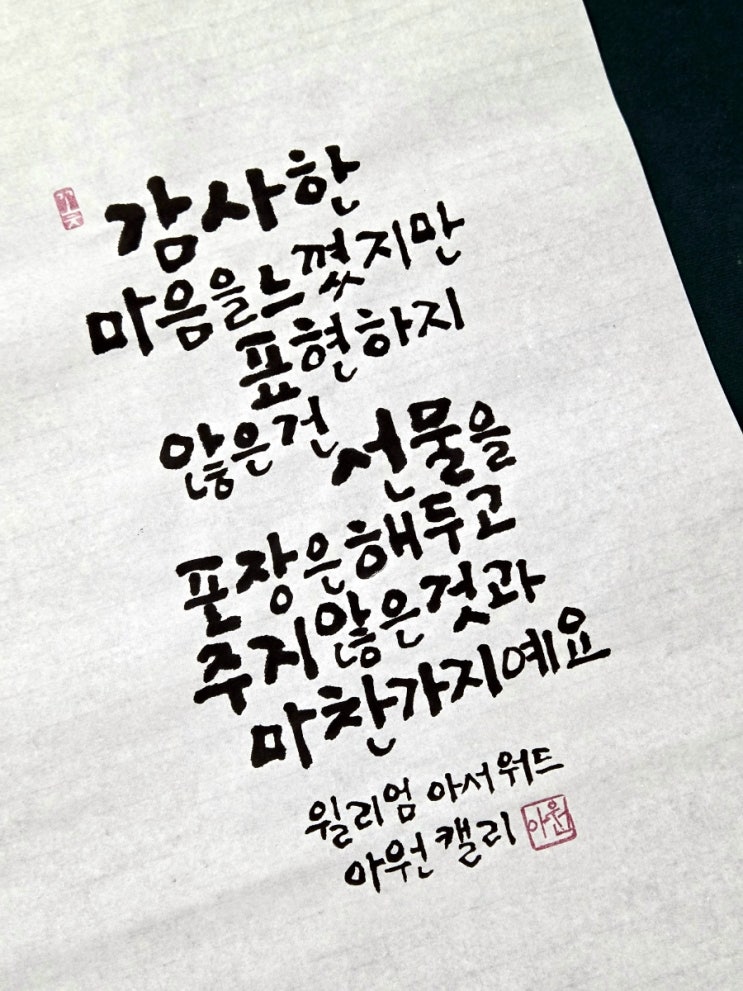 감사한
마음을 느꼈지만
표현하지
않은건 선물을
포장은 해두고
주지 않은것과
마찬가지예요
윌리엄 아서 워드
아원 캘리
아원